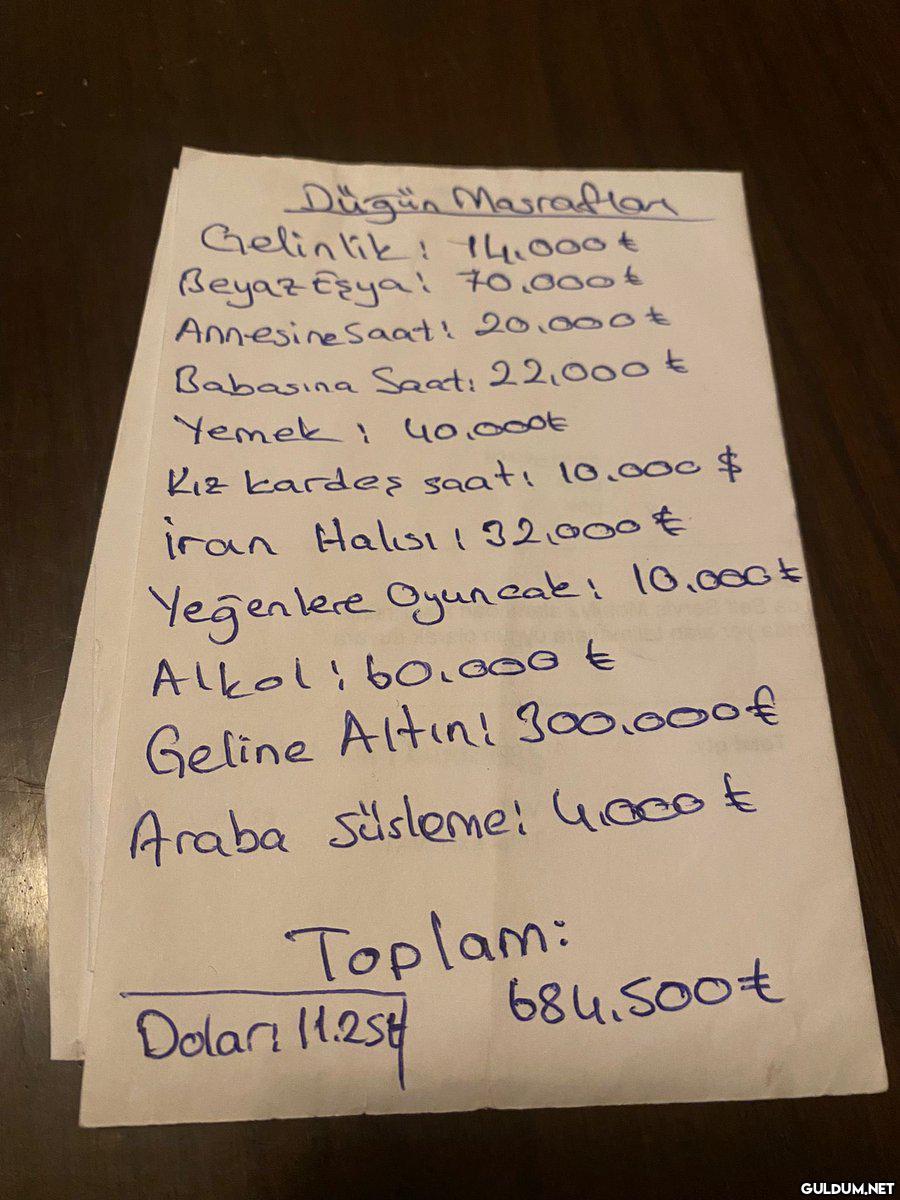 Düğün Masrafları
Gelinlik: 14.000₺
Beyaz Eşya: 70.000₺
Annesine Saat: 20.000₺
Babasına Saat: 22.000₺
Yemek: 40.000₺
Kız kardeş saat: 10.000 $
İran Halısı: 32.000₺
Yeğenlere Oyuncak: 10.000₺
Alkol: 60.000 ₺
Geline Altın: 300.000₺
Araba Süsleme: 4.000 ₺
Toplam:
684.500₺
Dolar: 11.25₺
GULDUM.NET